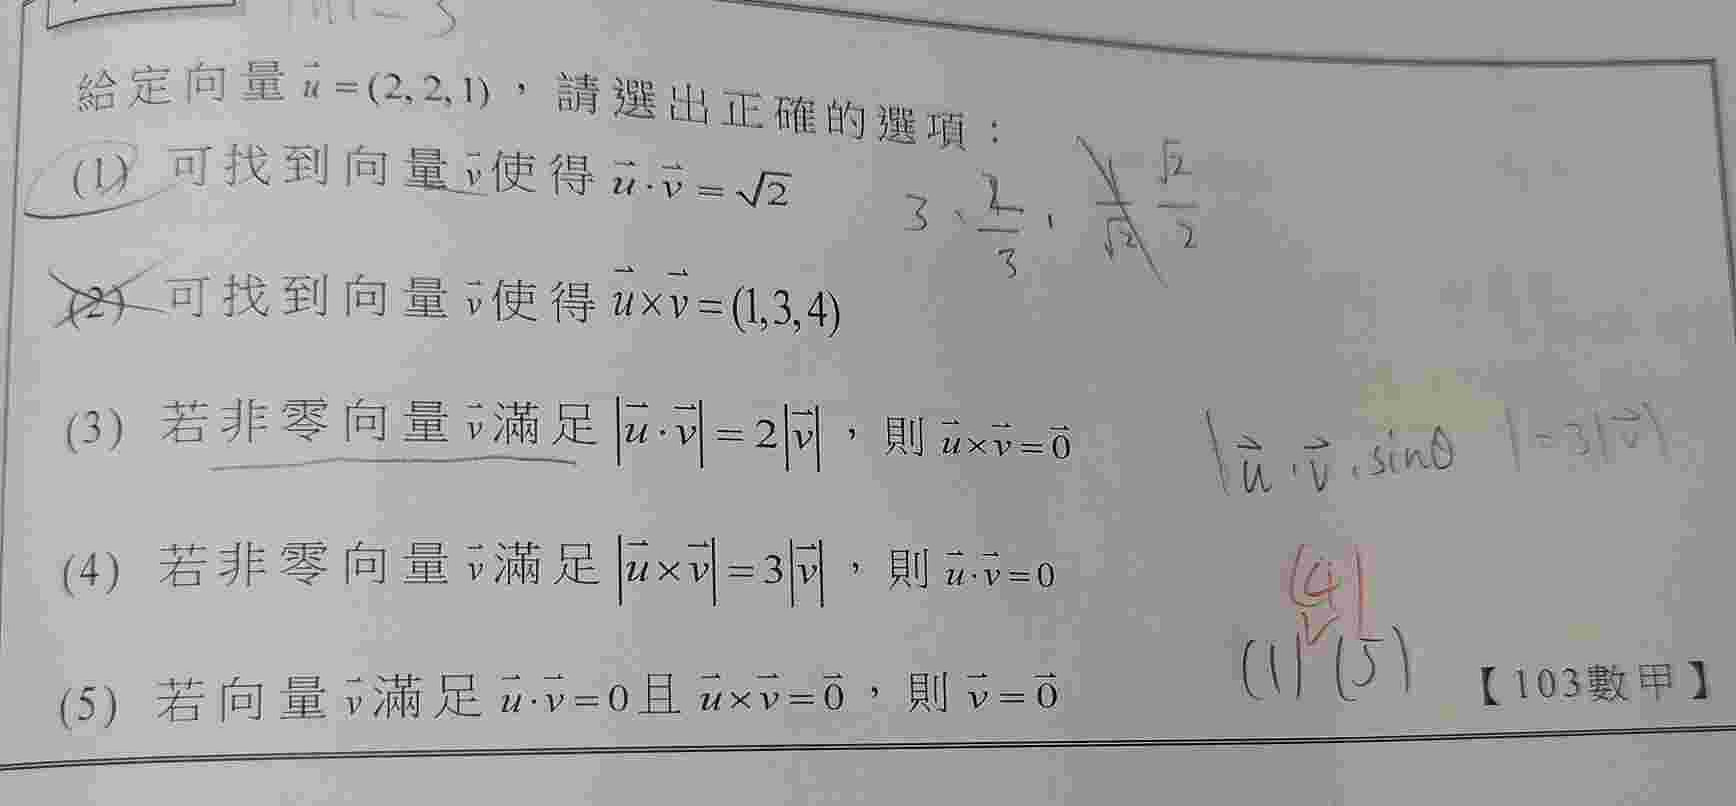 給定向量 u⃗ = (2, 2, 1),請選出正確的選項:
(1) 可找到向量 v⃗ 使得 u⃗ · v⃗ = √2
3 · 2/3 · √2/2
(2) 可找到向量 v⃗ 使得 u⃗ × v⃗ = (1,3,4)
(3) 若非零向量 v⃗ 滿足 |u⃗ · v⃗| = 2|v⃗|,則 u⃗ × v⃗ = 0⃗
|u⃗ · v⃗ · sinθ| = 3|v⃗|
(4) 若非零向量 v⃗ 滿足 |u⃗ × v⃗| = 3|v⃗|,則 u⃗ · v⃗ = 0
(4)
(1) (5)
(5) 若向量 v⃗ 滿足 u⃗ · v⃗ = 0 且 u⃗ × v⃗ = 0⃗,則 v⃗ = 0⃗
【103數甲】